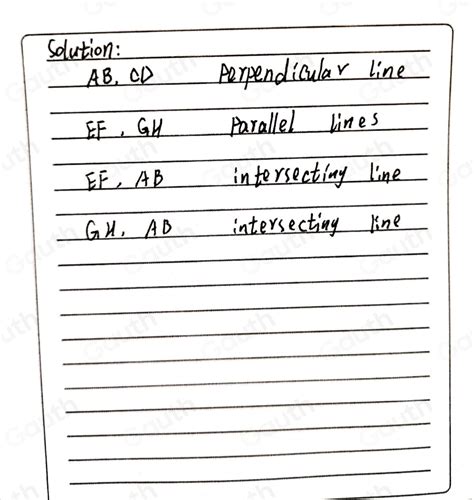 Solution:
AB, CD Perpendicular line
EF, GH Parallel lines
EF, AB intersecting line
GH, AB intersecting line